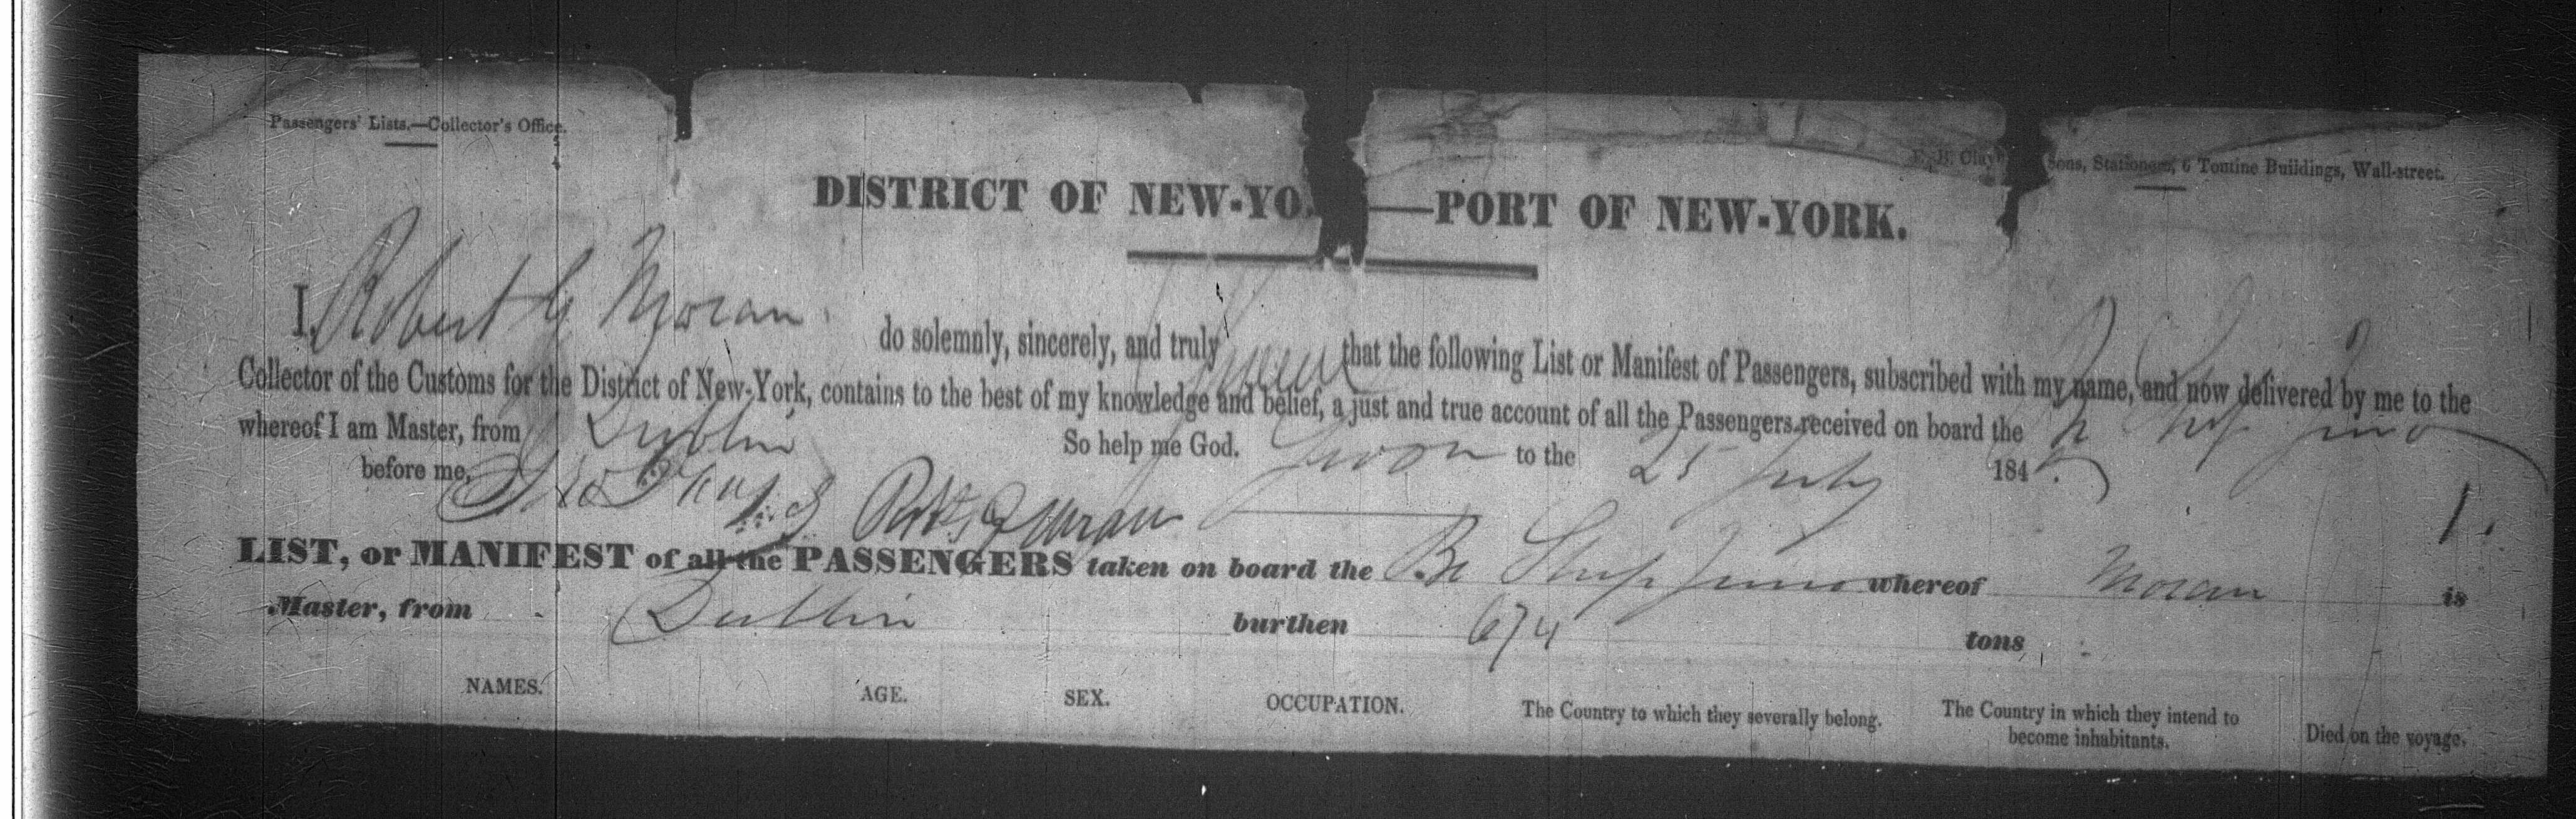 Passengers' Lists.—Collector's Office.
E. B. Clay Sons, Stationers, 6 Tontine Buildings, Wall-street.
DISTRICT OF NEW-YO —PORT OF NEW-YORK.
I, Robert G Moran do solemnly, sincerely, and truly swear that the following List or Manifest of Passengers, subscribed with my name, and now delivered by me to the
Collector of the Customs for the District of New-York, contains to the best of my knowledge and belief, a just and true account of all the Passengers received on board the Br Ship Juno
whereof I am Master, from Dublin So help me God. Sworn to the 25 July 184
before me, Robt G Moran
1.
LIST, or MANIFEST of all the PASSENGERS taken on board the Br Ship Juno whereof Moran is
Master, from Dublin burthen 674 tons
NAMES. AGE. SEX. OCCUPATION. The Country to which they severally belong. The Country in which they intend to become inhabitants. Died on the voyage.